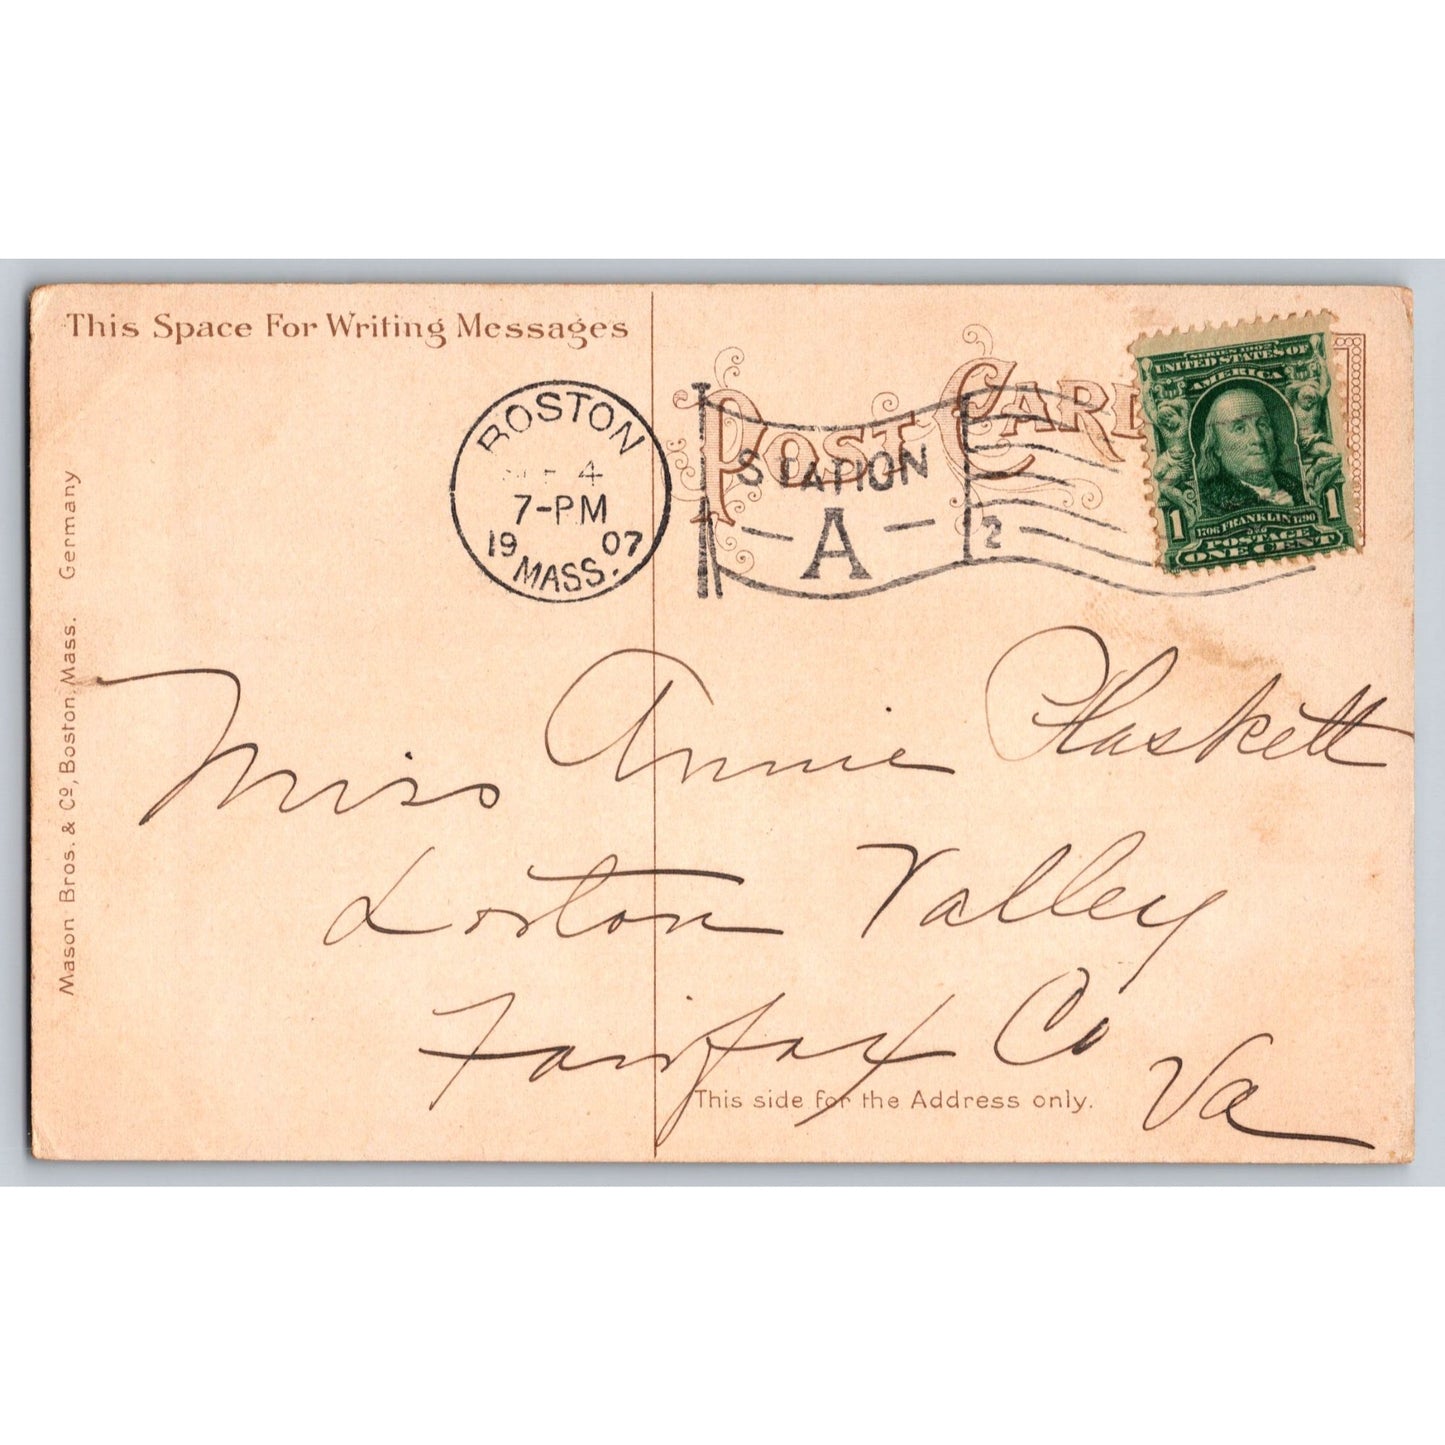 This Space For Writing Messages
POST CARD
SERIES 1902
UNITED STATES OF
AMERICA
1 1
1706 FRANKLIN 1790
POSTAGE
ONE CENT
BOSTON
4
7-PM
19 07
MASS.
STATION
A
2
Mason Bros. & Co., Boston, Mass. Germany
Miss Annie Plaskett
Lorton Valley
Fairfax Co
Va
This side for the Address only.